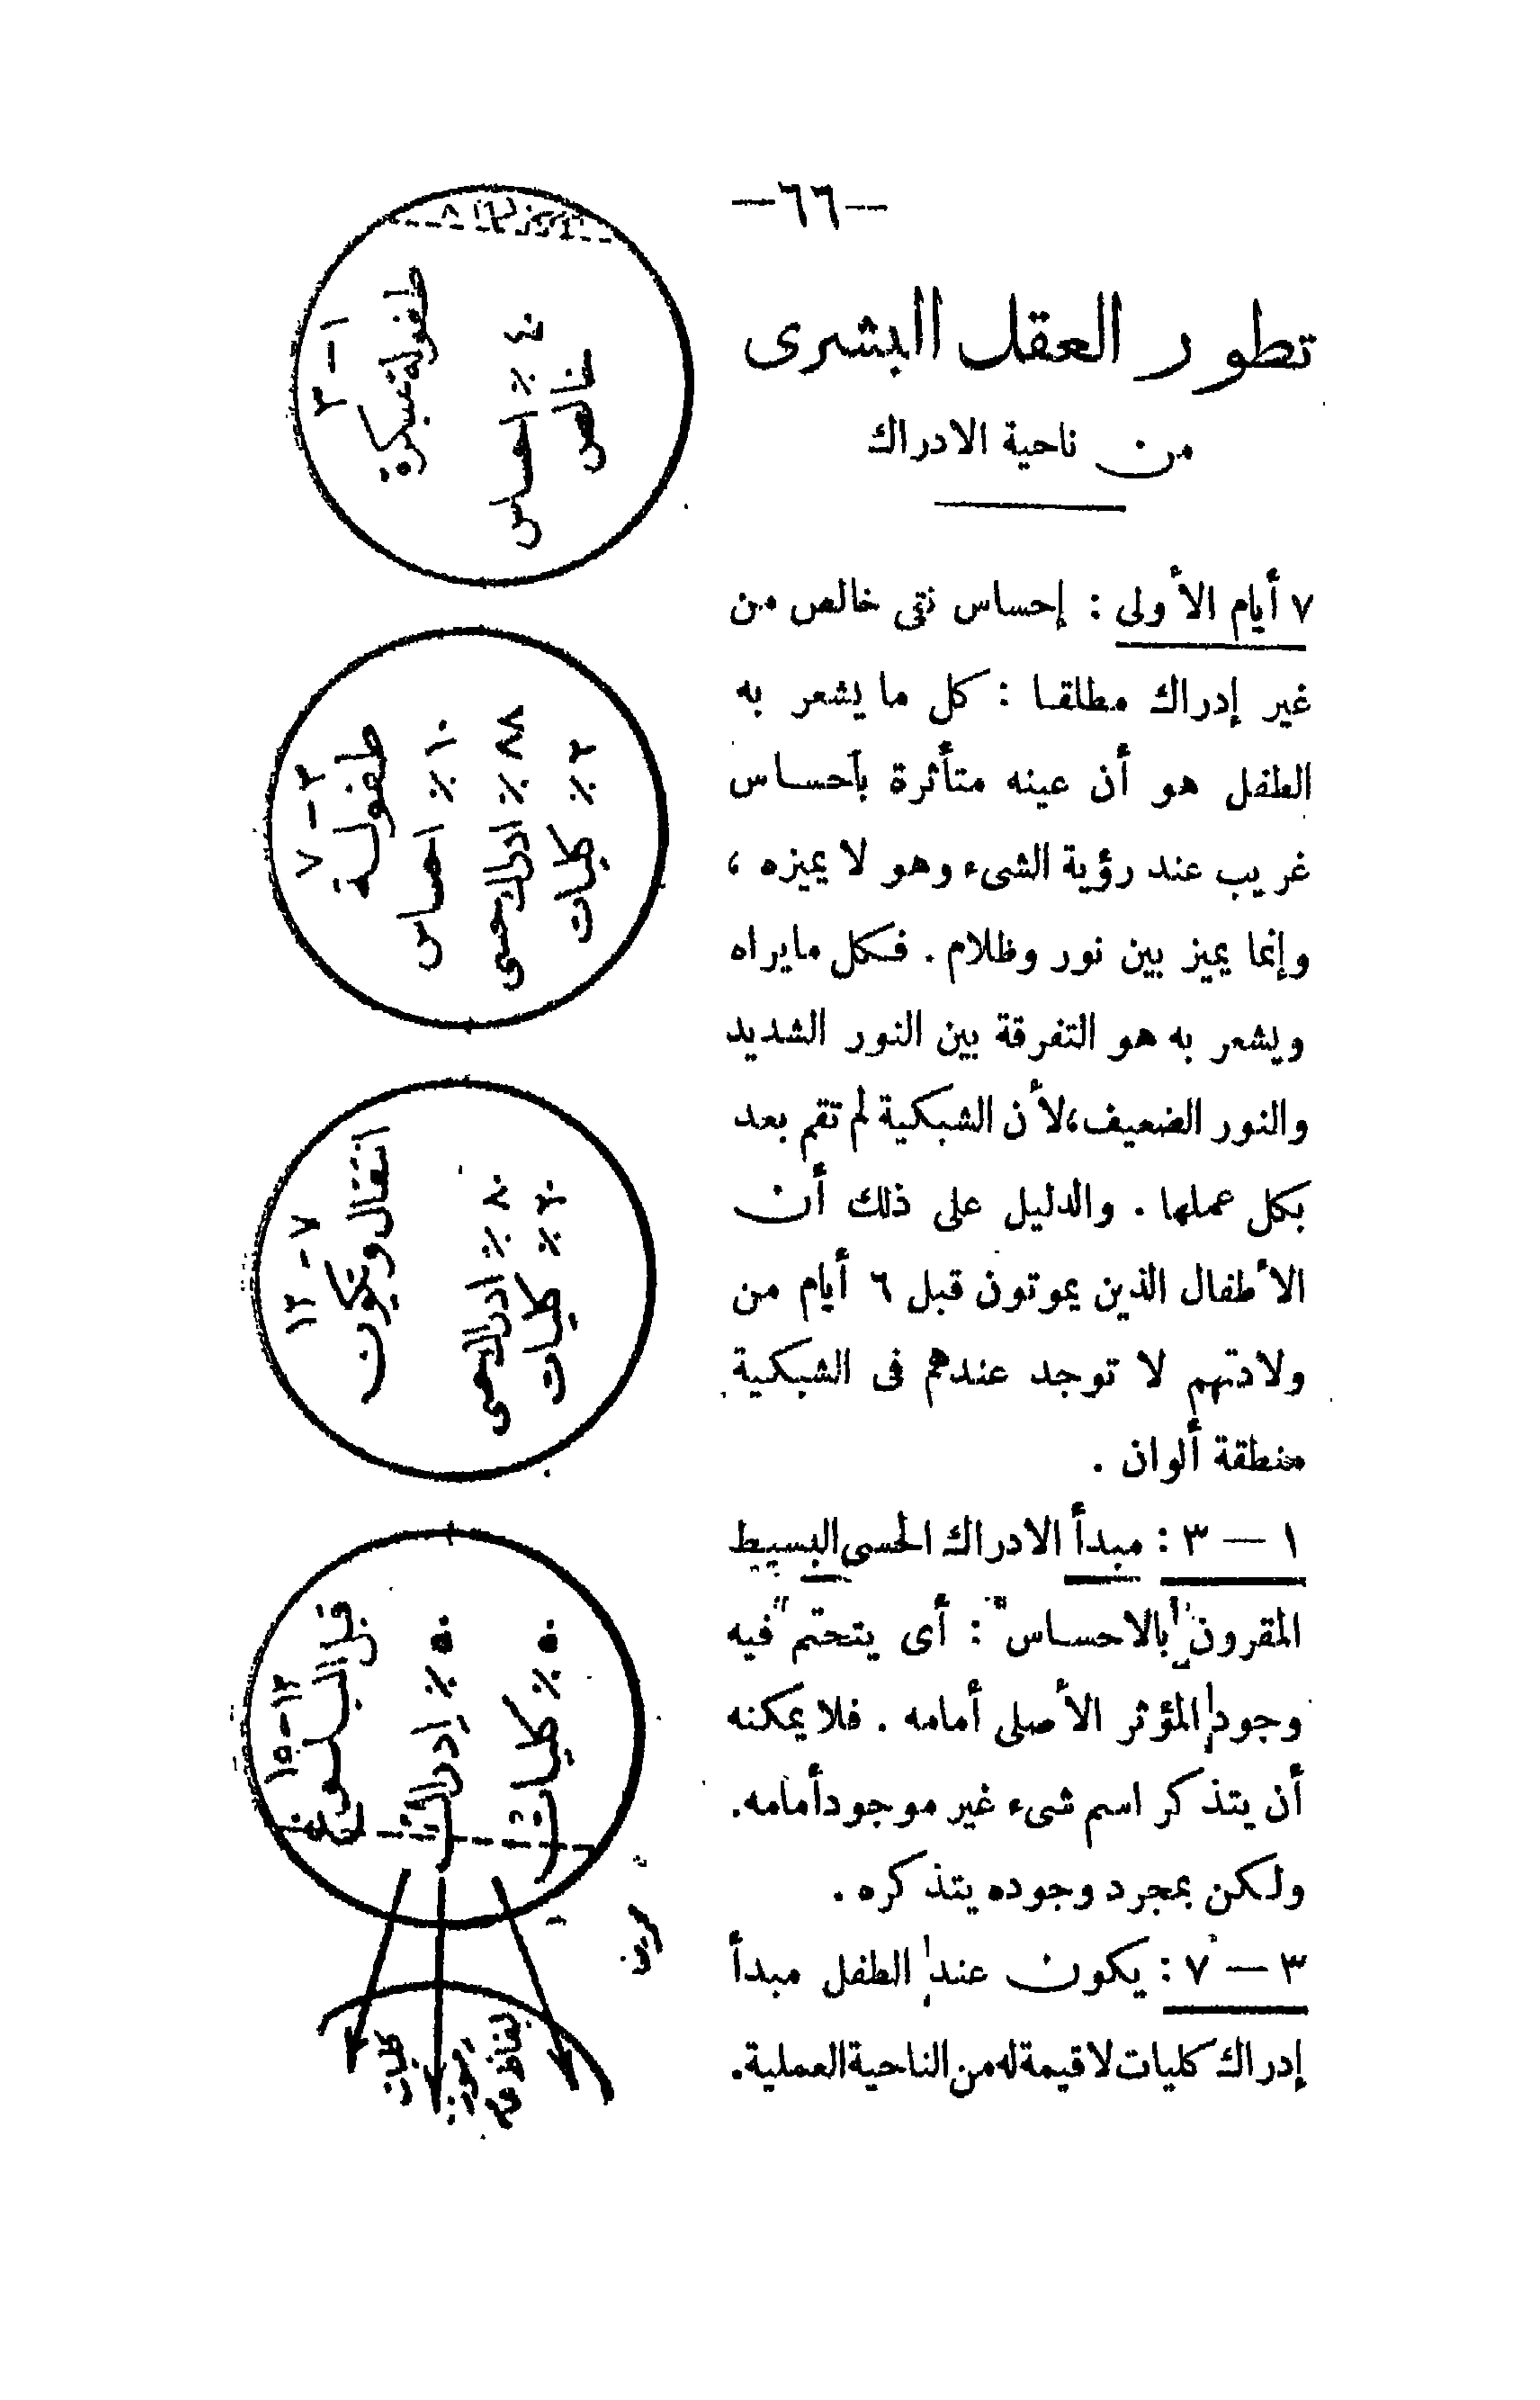 —٦٦—
تطور العقل البشرى
من ناحية الادراك
٧ أيام الأولى : إحساس نقى خالص من
غير إدراك مطلقا : كل ما يشعر به
الطفل هو أن عينه متأثرة بأحساس
غريب عند رؤية الشىء وهو لا يميزه ،
وإنما يميز بين نور وظلام . فكل مايراه
ويشعر به هو التفرقة بين النور الشديد
والنور الضعيف، لأن الشبكية لم تقم بعد
بكل عملها . والدليل على ذلك أن
الأطفال الذين يموتون قبل ٦ أيام من
ولادتهم لا توجد عندهم فى الشبكية
منطقة ألوان .
١ — ٣ : مبدأ الادراك الحسى البسيط
المقرون "بالاحساس" : أى يتحتم فيه
وجود المؤثر الأصلى أمامه . فلا يمكنه
أن يتذكر اسم شىء غير موجود أمامه.
ولكن بمجرد وجوده يتذكره .
٣ — ٧ : يكون عند الطفل مبدأ
إدراك كليات لا قيمة له من الناحية العملية.
١ – ٣
طفولة مبكرة
٪ احساس
خالص
٣ – ٧
طفولة
١٠ ٪ احساس
٨٨ ٪ ادراك حسى
٢ ٪ كليات
٧ – ١٢
انتقال وتكون
٨٠ ٪ ادراك حسى
٢٠ ٪ كليات
١٢ – ١٥
قبل البلوغ
٥٠ ٪ إدراك
٥٠ ٪ كليات